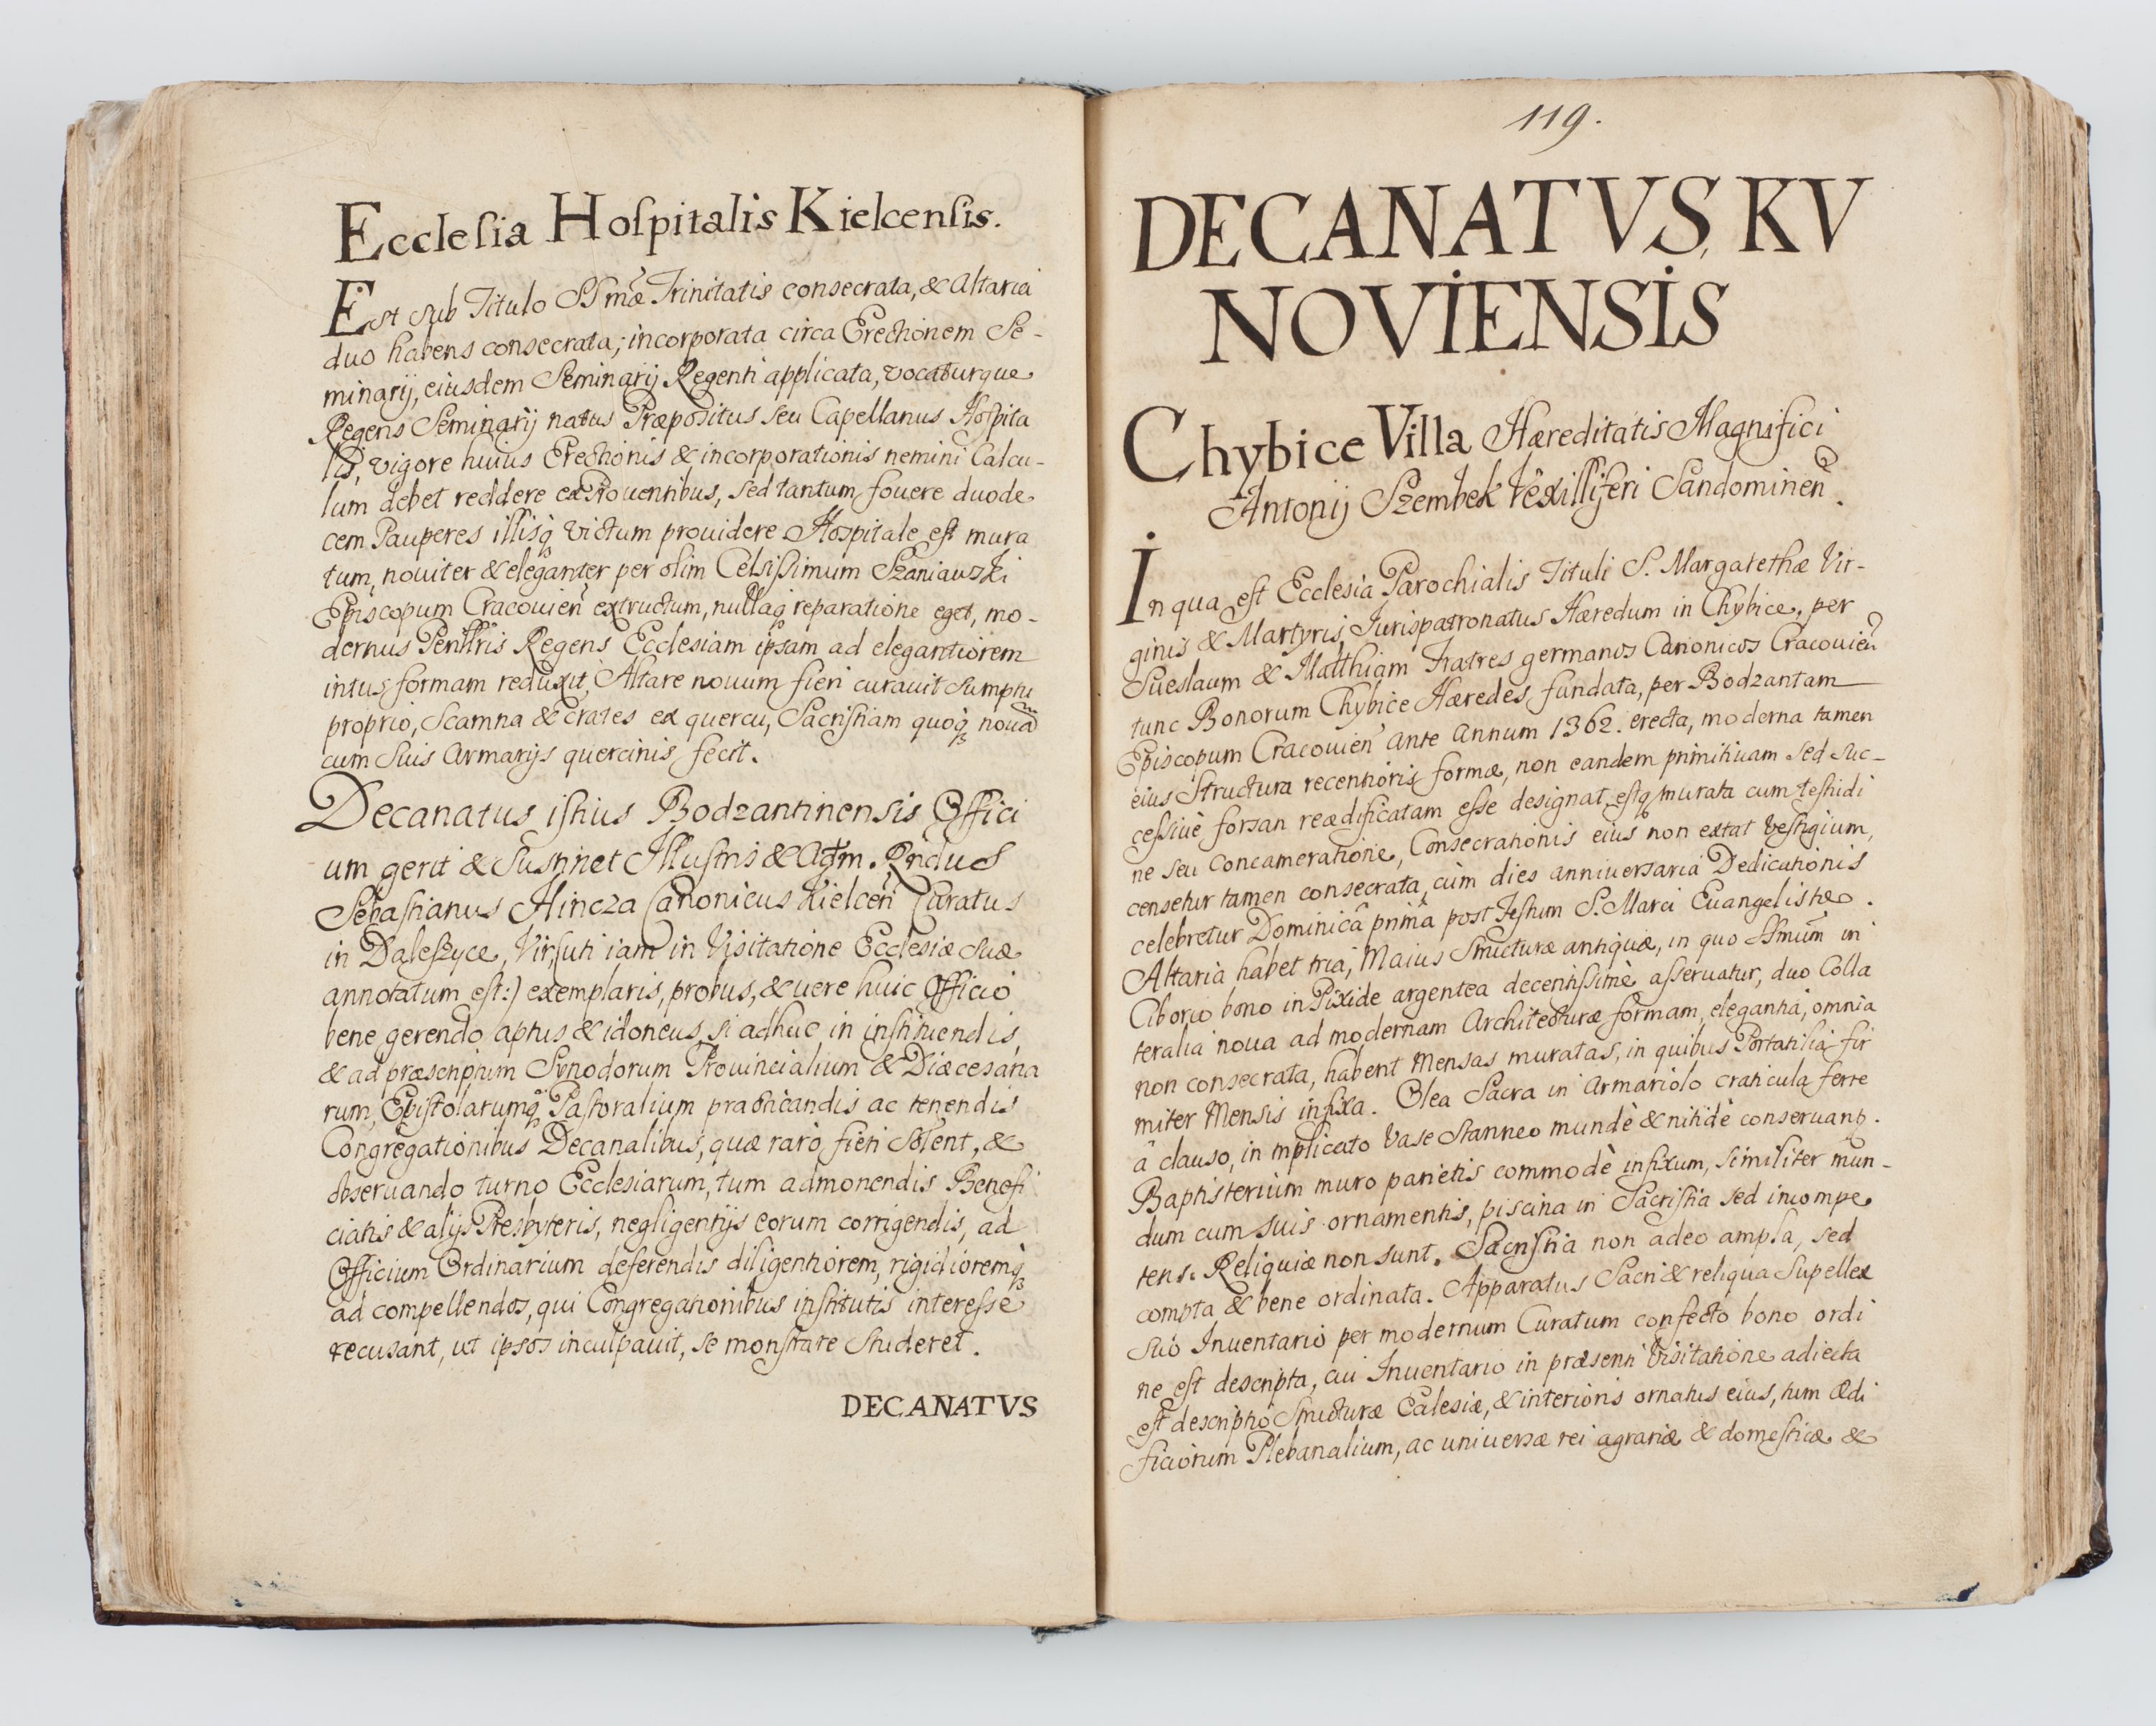 Ecclesia Hospitalis Kielcensis.
Est sub Titulo SSmæ Trinitatis consecrata, & Altaria
duo habens consecrata; incorporata circa Erectionem Se-
minarij, eiusdem Seminarij Regenti applicata, vocaturque
Regens Seminarij natus Præpositus seu Capellanus Hospita
lis, vigore huius Erectionis & incorporationis nemini Calcu-
lum debet reddere ex Prouentibus, sed tantum fouere duode
cem Pauperes illisq victum prouidere. Hospitale est mura
tum, nouiter & eleganter per olim Celsissimum Szaniawski
Episcopum Cracouien extructum, nullaq reparatione eget, mo-
dernus Regens Ecclesiam ipsam ad elegantiorem
intus formam reduxit, Altare nouum fieri curauit sumptu
proprio, Scamna & crates ex quercu, Sacristiam quoq nouã
cum suis Armarijs quercinis fecit.
Decanatus istius Bodzantinensis Offici
um gerit & sustinet Illustris & Adm. Rndus
Sebastianus Hincza Canonicus Kielcen Curatus
in Daleszyce, Vir (uti iam in Visitatione Ecclesiæ suæ
annotatum est:) exemplaris, probus, & uere huic Officio
bene gerendo aptus & idoneus, si adhuc in instituendis,
& ad præscriptum Synodorum Prouincialium & Diæcesana
rum, Epistolarumq Pastoralium practicandis ac tenendis
Congregationibus Decanalibus, quæ rarò fieri solent, &
obseruando turno Ecclesiarum, tum admonendis Benefi
ciatis & alijs Presbyteris, negligentijs eorum corrigendis, ad
Officium Ordinarium deferendis diligentiorem, rigidioremq
ad compellendos, qui Congregationibus institutis interesse
recusant, ut ipsos inculpauit, se monstrare studeret.
DECANATVS
119.
DECANATVS KV
NOVIENSIS
Chybice Villa Hæreditatis Magnifici
Antonij Szembek Vexilliferi Sandominen.
In qua est Ecclesia Parochialis Tituli S. Margarethæ Vir-
ginis & Martyris, Iurispatronatus Hæredum in Chybice, per
Sueslaum & Matthiam Fratres germanos Canonicos Cracouien
tunc Bonorum Chybice Hæredes fundata, per Bodzantam
Episcopum Cracouien ante Annum 1362. erecta, moderna tamen
eius structura recentioris formæ, non eandem primitiuam sed suc-
cessiuè forsan reædificatam esse designat, estq murata cum testudi
ne seu Concameratione, Consecrationis eius non extat vestigium,
censetur tamen consecrata, cùm dies anniuersaria Dedicationis
celebretur Dominicâ primâ post Festum S. Marci Euangelistæ.
Altaria habet tria, Maius structuræ antiquæ, in quo SSmum in
Ciborio bono in Pixide argentea decentissimè asseruatur, duo Colla
teralia noua ad modernam Architecturæ formam, elegantia, omnia
non consecrata, habent Mensas muratas, in quibus Portatilia fir
miter Mensis infixa. Olea Sacra in Armariolo craticula ferre
â clauso, in triplicato Vase stanneo mundè & nitidè conseruantr.
Baptisterium muro parietis commodè infixum, similiter mun-
dum cum suis ornamentis, piscina in Sacristia sed incompe
tens. Reliquiæ non sunt. Sacristia non adeo ampla, sed
compta & bene ordinata. Apparatus Sacri & reliqua Supellex
suo Inuentario per modernum Curatum confecto bono ordi
ne est descripta, cui Inuentario in præsenti Visitatione adiecta
est descriptio structuræ Ecclesiæ, & interioris ornatus eius, tum Ædi
ficiorum Plebanalium, ac uniuersæ rei agrariæ & domesticæ &